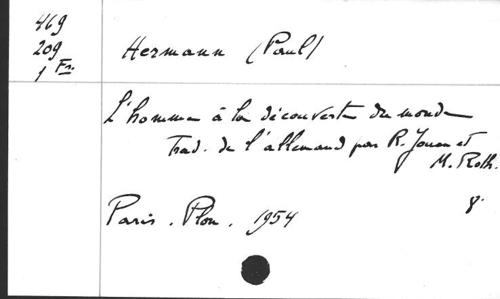 469
209
1 Fr.
Hermann (Paul)
L'homme à la découverte du monde
Trad. de l'allemand par R. Jouan et
M. Roth.
8°
Paris. Plon. 1954